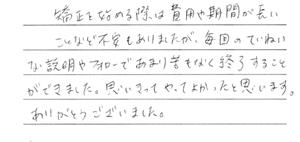 矯正を始める際は費用や期間が長い
ことなど不安もありましたが、毎回のていねい
な説明やフォローであまり苦もなく終了すること
ができました。思いきってやってよかったと思います。
ありがとうございました。